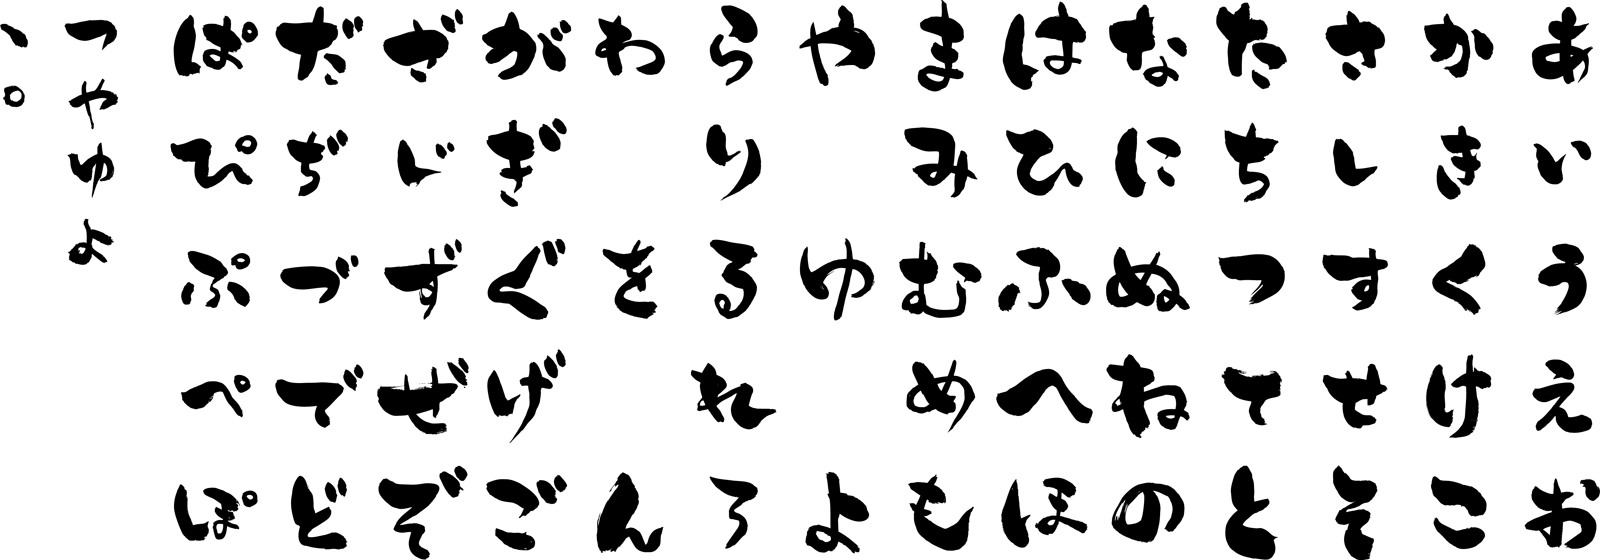 あいうえお
かきくけこ
さしすせそ
たちつてと
なにぬねの
はひふへほ
まみむめも
やゆよ
らりるれろ
わをん
がぎぐげご
ざじずぜぞ
だぢづでど
ぱぴぷぺぽ
っゃゅょ
、。